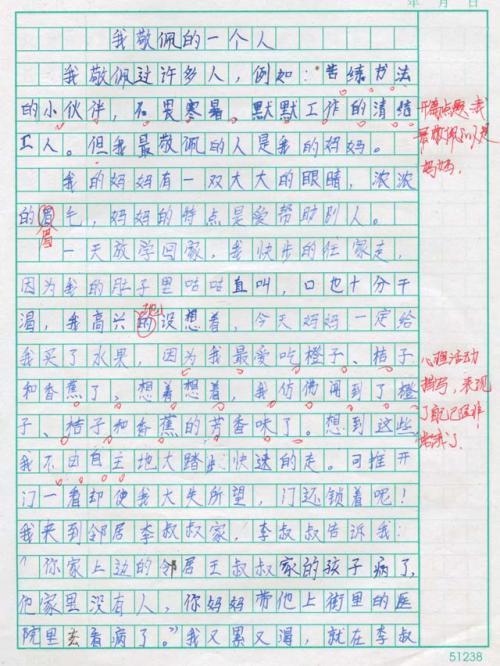 年 月 日
我敬佩的一个人
我敬佩过许多人，例如：苦练书法
的小伙伴，不畏寒暑、默默工作的清洁
工人。但我最敬佩的人是我的妈妈。
开篇点题：我
最敬佩的人是
妈妈.
我的妈妈有一双大大的眼睛，浓浓
的眉毛，妈妈的特点是爱帮助别人。
眉
一天放学回家，我快步的往家走，
因为我的肚子里咕咕直叫，口也十分干
渴，我高兴的设想着，今天妈妈一定给
地
我买了水果，因为我最爱吃橙子、桔子
和香蕉了，想着想着，我仿佛闻到了橙
子、桔子和香蕉的芳香味了。想到这些
心理活动
描写，表现
了自己
我不由自主地大踏步快速的走。可推开
门一看却使我大失所望，门还锁着呢！
我来到邻居李叔叔家，李叔叔告诉我：
“你家上边的邻居王叔叔家的孩子病了，
他家里没有人，你妈妈带他上街里的医
院里去看病了。”我又累又渴，就在李叔
51238